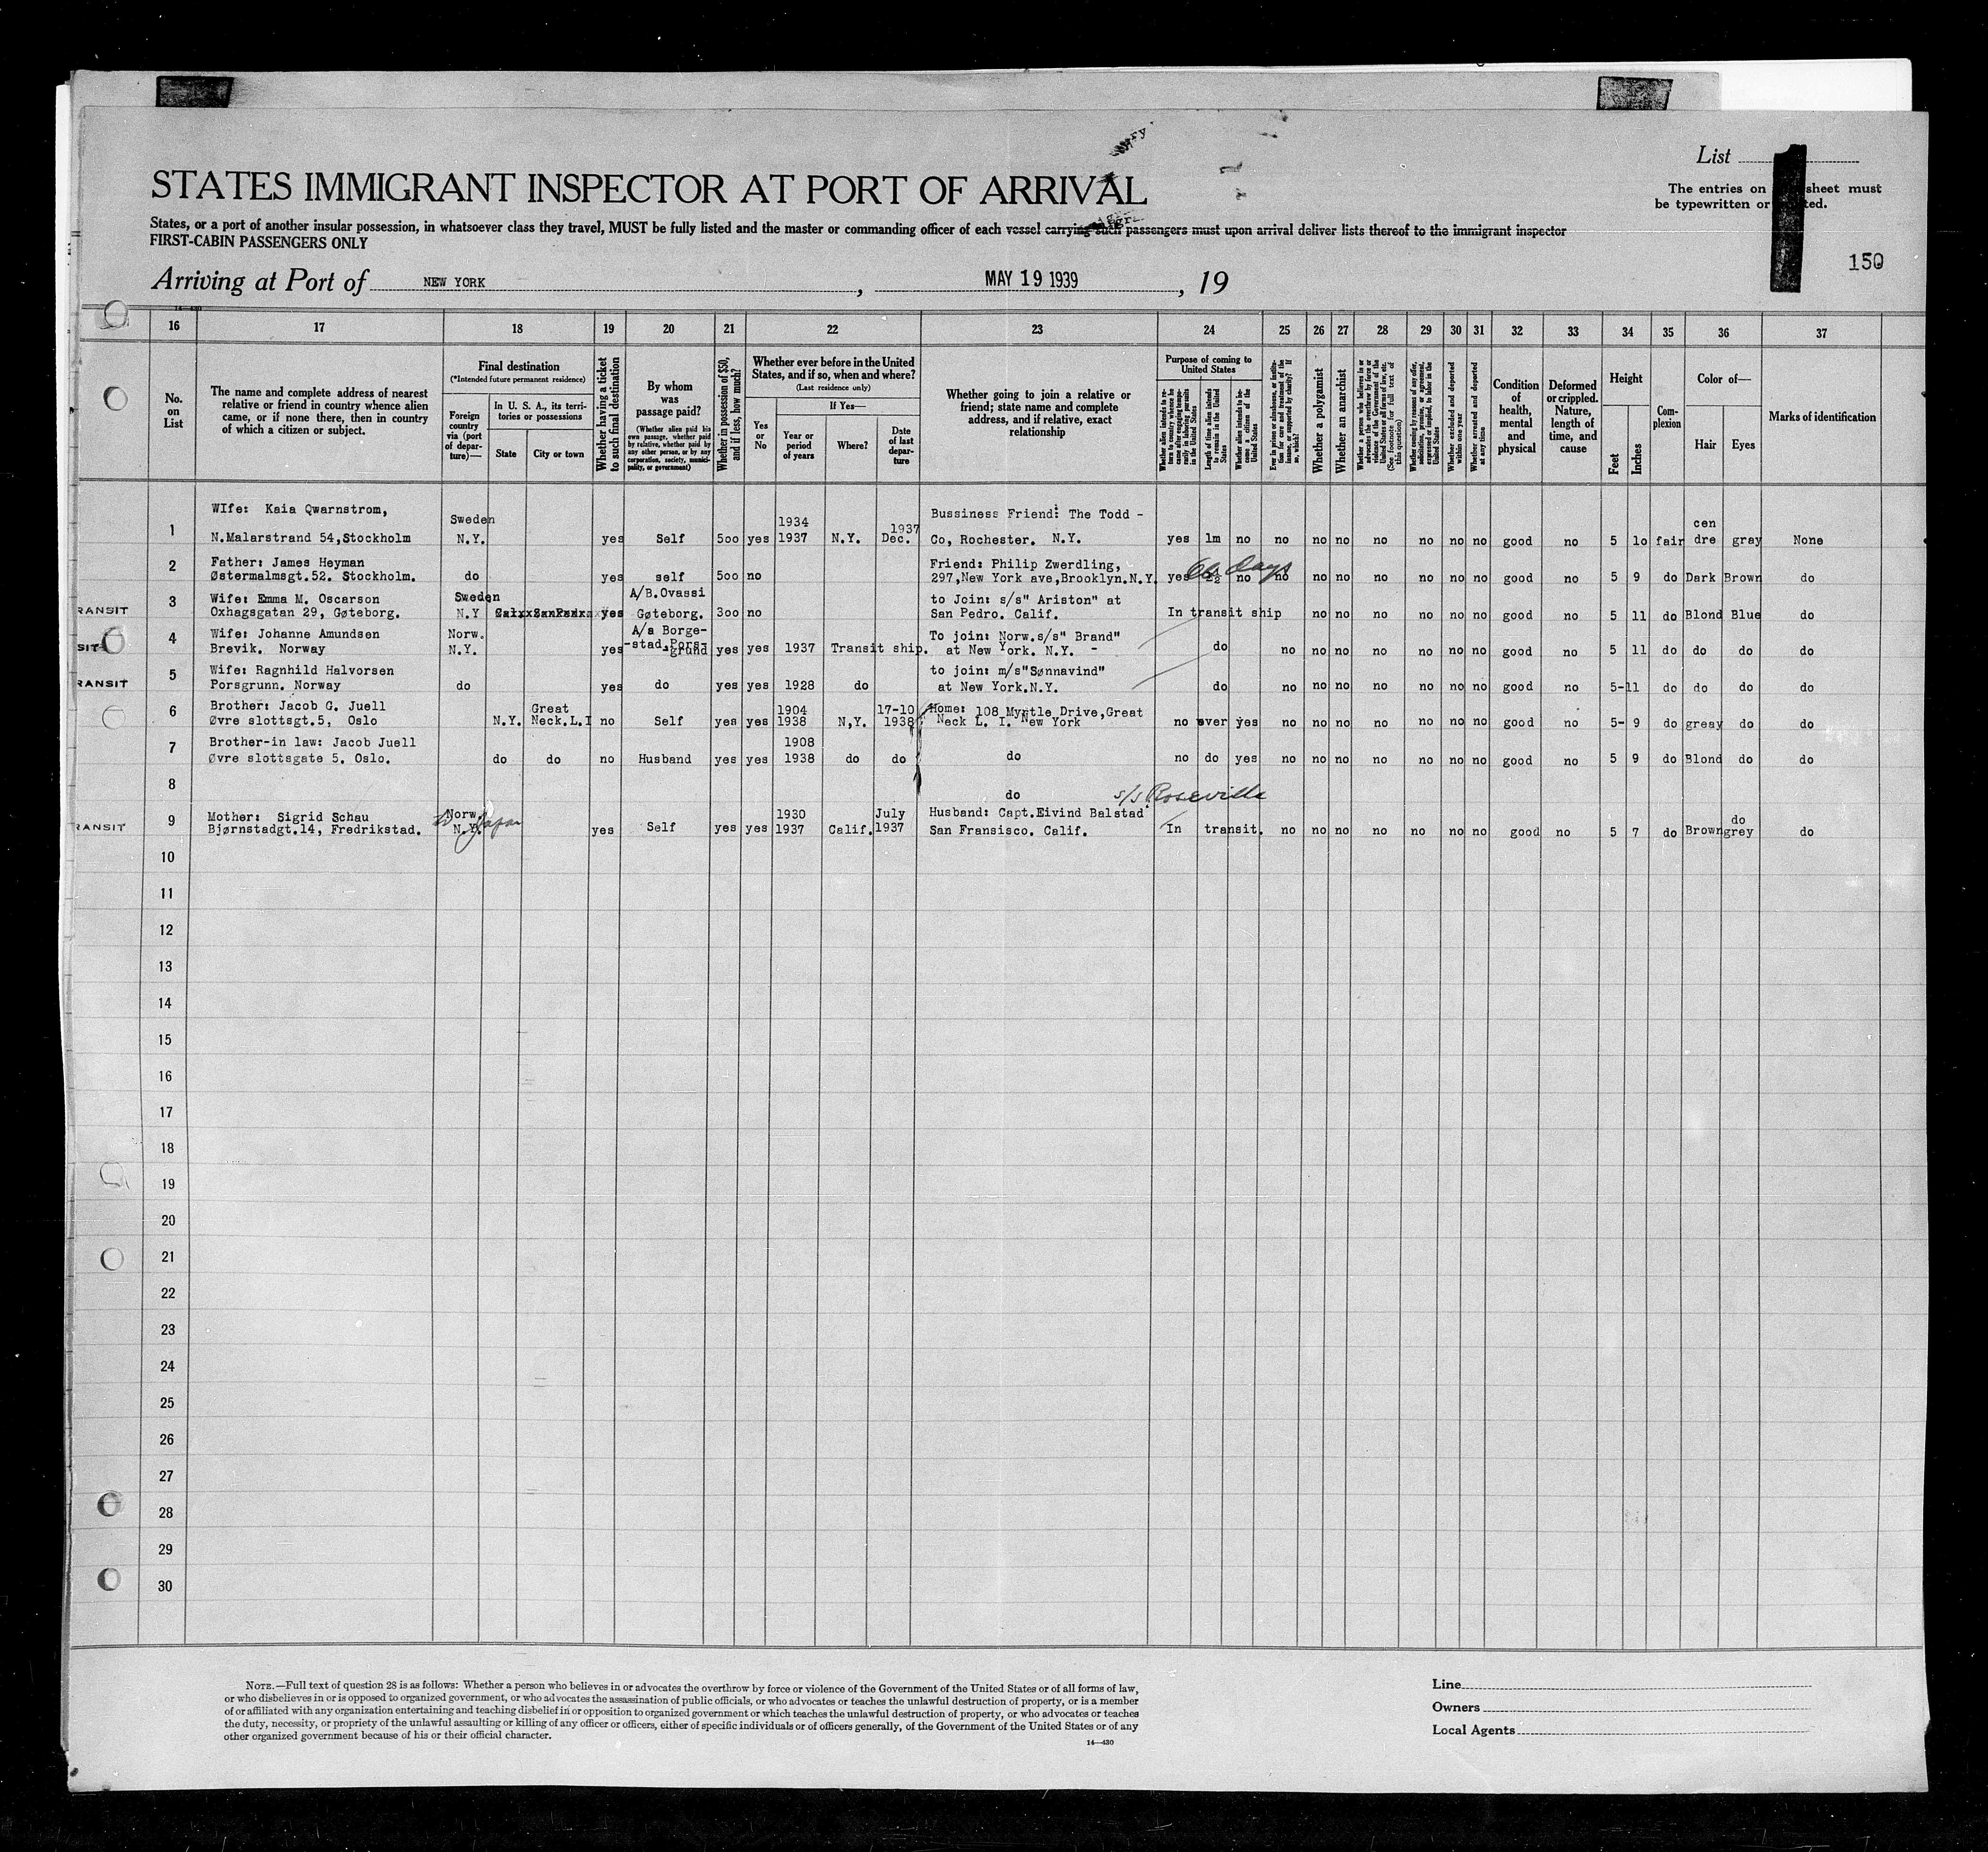 List
The entries on sheet must
be typewritten or
STATES IMMIGRANT INSPECTOR AT PORT OF ARRIVAL
States, or a port of another insular possession, in whatsoever class they travel, MUST be fully listed and the master or commanding officer of each vessel carrying such passengers must upon arrival deliver lists thereof to the immigrant inspector
FIRST-CABIN PASSENGERS ONLY
150
Arriving at Port of NEW YORK, MAY 19 1939, 19
16 17 18 19 20 21 22 23 24 25 26 27 28 29 30 31 32 33 34 35 36 37
No. on List
The name and complete address of nearest relative or friend in country whence alien came, or if none there, then in country of which a citizen or subject.
Final destination
(*Intended future permanent residence)
Foreign country via (port of departure)—
In U. S. A., its territories or possessions
State
City or town
Whether having a ticket to such final destination
By whom was passage paid?
(Whether alien paid his own passage, whether paid by relative, whether paid by any other person, or by any corporation, society, municipality, or government)
Whether in possession of $50, and if less, how much?
Whether ever before in the United States, and if so, when and where?
(Last residence only)
Yes or No
If Yes—
Year or period of years
Where?
Date of last departure
Whether going to join a relative or friend; state name and complete address, and if relative, exact relationship
Purpose of coming to United States
Whether alien intends to return to country whence he came after engaging temporarily in laboring pursuits in the United States
Length of time alien intends to remain in the United States
Whether alien intends to become a citizen of the United States
Ever in prison or almshouse, or institution for care and treatment of the insane, or supported by charity? If so, which?
Whether a polygamist
Whether an anarchist
Whether a person who believes in or advocates the overthrow by force or violence of the Government of the United States or all forms of law, etc. (See footnote for full text of this question)
Whether coming by reason of any offer, solicitation, promise, or agreement, expressed or implied, to labor in the United States
Whether excluded and deported within one year
Whether arrested and deported at any time
Condition of health, mental and physical
Deformed or crippled. Nature, length of time, and cause
Height
Feet
Inches
Complexion
Color of—
Hair
Eyes
Marks of identification
WIfe: Kaia Qwarnstrom, Sweden 1934 1937 Bussiness Friend: The Todd - cen
1 N.Malarstrand 54,Stockholm N.Y. yes Self 500 yes 1937 N.Y. Dec. Co, Rochester. N.Y. yes 1m no no no no no no no no good no 5 10 fair dre gray None
2 Father: James Heyman Friend: Philip Zwerdling, 66 days
Østermalmsgt.52. Stockholm. do yes self 500 no 297,New York ave,Brooklyn.N.Y. yes no no no no no no no no good no 5 9 do Dark Brown do
3 Wife: Emma M. Oscarson Sweden A/B.Ovassi to Join: s/s" Ariston" at
RANSIT Oxhagsgatan 29, Gøteborg. N.Y yes Gøteborg. 300 no San Pedro. Calif. In transit ship no no no no no no no good no 5 11 do Blond Blue do
4 Wife: Johanne Amundsen Norw. A/s Borge- To join: Norw.s/s" Brand"
SIT Brevik. Norway N.Y. yes -stad.Pors-grund yes yes 1937 Transit ship. at New York. N.Y. - do no no no no no no no good no 5 11 do do do do
5 Wife: Ragnhild Halvorsen to join: m/s"Sønnavind"
RANSIT Porsgrunn. Norway do yes do yes yes 1928 do at New York.N.Y. do no no no no no no no good no 5-11 do do do do
6 Brother: Jacob G. Juell Great 1904 17-10 Home: 108 Myrtle Drive,Great
Øvre slottsgt.5, Oslo N.Y. Neck.L.I no Self yes yes 1938 N,Y. 1938 Neck L. I. New York no ever yes no no no no no no no good no 5- 9 do greay do do
7 Brother-in law: Jacob Juell 1908
Øvre slottsgate 5. Oslo. do do no Husband yes yes 1938 do do do no do yes no no no no no no no good no 5 9 do Blond do do
8 do s/s Roseville
9 Mother: Sigrid Schau Norw. 1930 July Husband: Capt.Eivind Balstad do
RANSIT Bjørnstadgt.14, Fredrikstad. N.Y. Japan yes Self yes yes 1937 Calif. 1937 San Fransisco. Calif. In transit. no no no no no no no good no 5 7 do Brown grey do
10
11
12
13
14
15
16
17
18
19
20
21
22
23
24
25
26
27
28
29
30
NOTE.—Full text of question 28 is as follows: Whether a person who believes in or advocates the overthrow by force or violence of the Government of the United States or of all forms of law,
or who disbelieves in or is opposed to organized government, or who advocates the assassination of public officials, or who advocates or teaches the unlawful destruction of property, or is a member
of or affiliated with any organization entertaining and teaching disbelief in or opposition to organized government or which teaches the unlawful destruction of property, or who advocates or teaches
the duty, necessity, or propriety of the unlawful assaulting or killing of any officer or officers, either of specific individuals or of officers generally, of the Government of the United States or of any
other organized government because of his or their official character.
14—430
Line
Owners
Local Agents